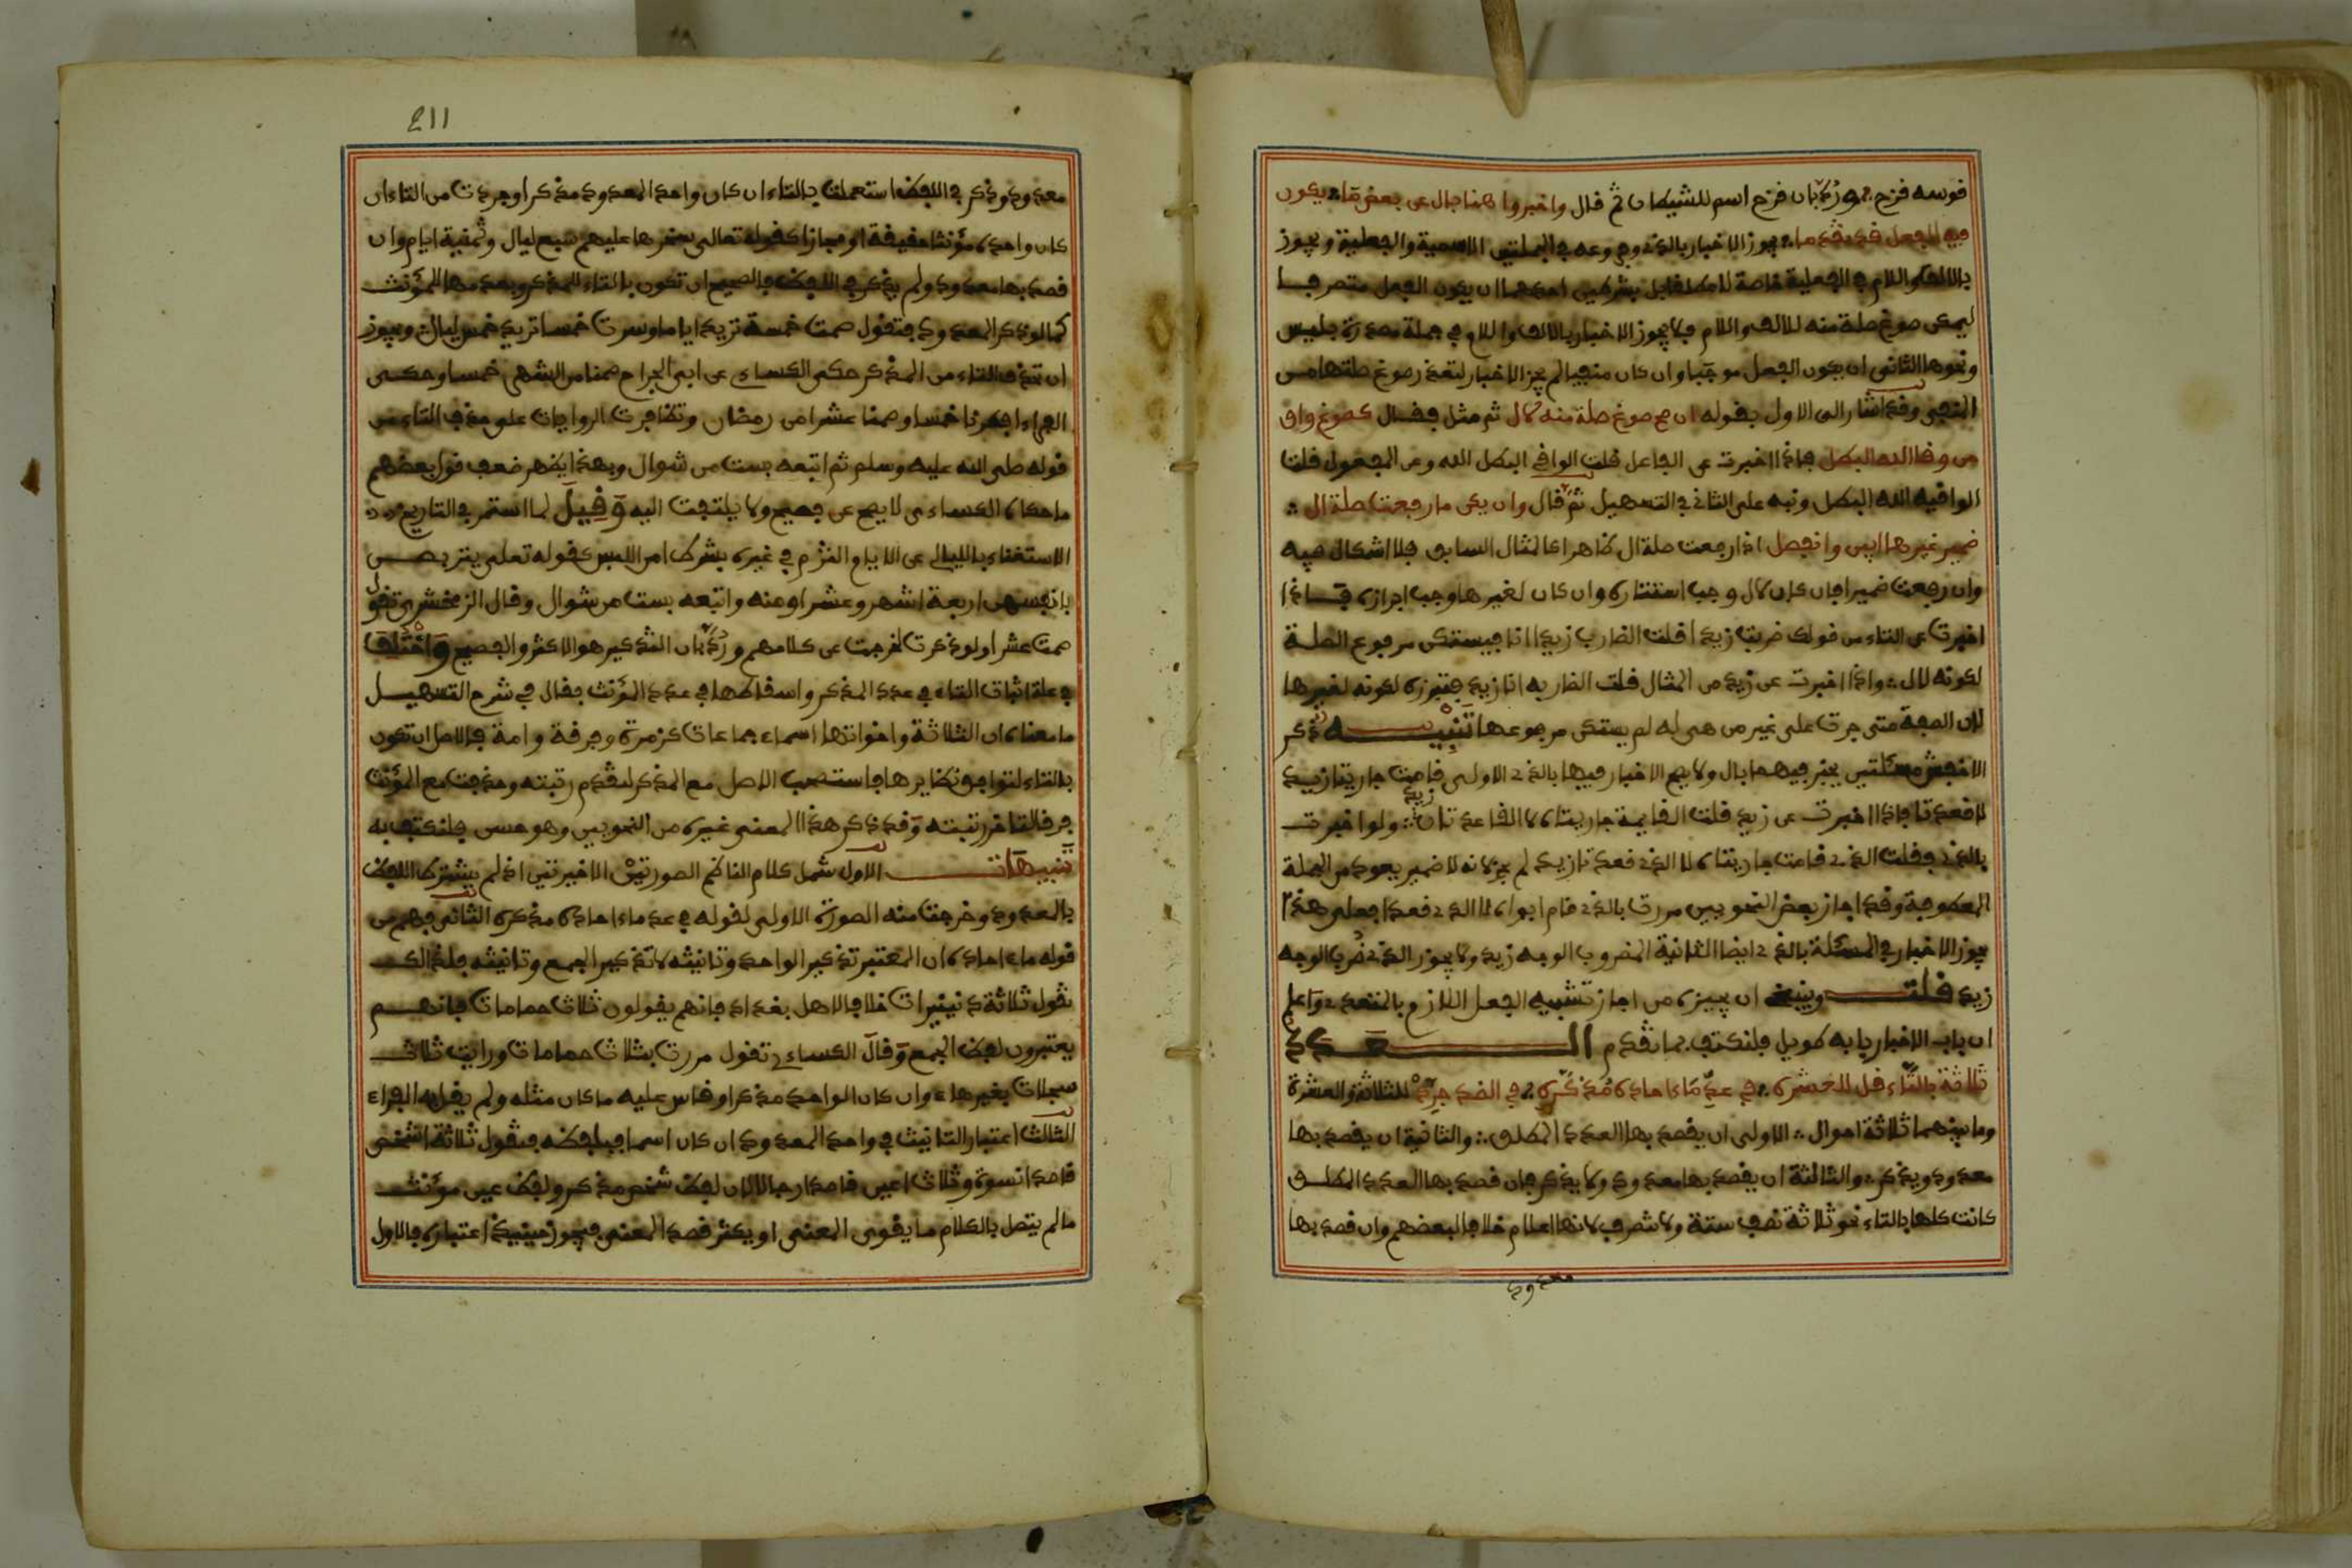 قوسه قزح ورد بان قزح اسم للشيطان ثم قال واخبروا هنا بال عن بعض ما يكون
فيه الفعل قد تقدما يجوز الاخبار بالذي وفروعه في الجملتين الاسمية والفعلية ويجوز
بالالف واللام في الفعلية خاصة لا مطلقا بل بشرطين احدهما ان يكون الفعل متصرفا
ليمكن صوغ صلة منه للالف واللام فلا يجوز الاخبار بالالف واللام في جملة مصدرة بليس
ونحوها الثاني ان يكون الفعل موجبا وان كان منفيا لم يجز الاخبار لتعذر صوغ صلتها من
المنفي وقد اشار الى الاول بقوله ان صح صوغ صلة منه لال ثم مثل فقال كصوغ واق
من وقا الله البطل فاذا اخبرت عن الفاعل قلت الواقي البطل الله وعن المفعول قلت
الواقيه الله البطل ونبه على الثاني في التسهيل ثم قال وان يكن ما رفعت صلة ال
ضمير غيرها ابين وانفصل اذا رفعت صلة ال ظاهرا كالمثال السابق فلا اشكال فيه
وان رفعت ضميرا فان كان لال وجب استتاره وان كان لغيرها وجب ابرازه فاذا
اخبرت عن التاء من قولك ضربت زيدا قلت الضارب زيدا انا فيستكن مرفوع الصلة
لكونه لال واذا اخبرت عن زيد من المثال قلت الضاربه انا زيد فتبرزه لكونه لغيرها
لان الصفة متى جرت على غير من هي له لم يستكن مرفوعها تنبيه ذكر
الاخفش مسئلتين يخبر فيهما بال ولا يصح الاخبار فيهما بالذي الاولى قامت جاريتا زيد
لا قعدتا فاذا اخبرت عن زيد قلت القايمة جاريتاه لا القاعدتان زيد ولو اخبرت
بالذي فقلت الذي قامت جاريتاه لا الذي قعدتا زيد لم يجز لانه لا ضمير يعود من الجملة
المعطوفة وقد اجاز بعض النحويين مررت بالذي قام ابواه لا الذي قعدا فعلى هذا
يجوز الاخبار في المسئلة بالذي ايضا الثانية المضروب الوجه زيد ولا يجوز الذي ضرب الوجه
زيد قلت وينبغي ان يجيزه من اجاز تشبيه الفعل اللازم بالمتعدي واعلم
ان باب الاخبار باب طويل فلنكتف بما تقدم العدد
ثلاثة بالتاء قل للعشره في عد ما احاده مذكره في الضد جرد للثلاثة والعشرة
وما بينهما ثلاثة احوال الاولى ان يقصد بها العدد المطلق والثانية ان يقصد بها
معدود ويذكر والثالثة ان يقصد بها معدود ولا يذكر فان قصد بها العدد المطلق
كانت كلها بالتاء نحو ثلاثة نصف ستة ولا تنصرف لانها اعلام خلافا لبعضهم وان قصد بها
معدود
211
معدود وذكر في اللفظ استعملت بالتاء ان كان واحد المعدود مذكرا وجردت من التاء ان
كان واحده مؤنثا حقيقة او مجازا كقوله تعالى سخرها عليهم سبع ليال وثمنية ايام وان
قصد بها معدود ولم يذكر في اللفظ فالصحيح ان تكون بالتاء للمذكر وبعدمها للمؤنث
كما لو ذكر المعدود فتقول صمت خمسة تريد اياما وسرت خمسا تريد خمس ليال ويجوز
ان تحذف التاء من المذكر حكى الكساءي عن ابي الجراح صمنا من الشهر خمسا وحكى
الفراء افطرنا خمسا وصمنا عشرا من رمضان وتظافرت الروايات على حذف التاء من
قوله صلى الله عليه وسلم ثم اتبعه بست من شوال وبهذا يظهر ضعف قول بعضهم
ما حكاه الكساءي لا يصح عن فصيح ولا يلتفت اليه وقيل لما استمر في التاريخ
الاستغناء بالليالي عن الايام التزم في غيره بشرط امن اللبس كقوله تعلى يتربصن
بانفسهن اربعة اشهر وعشرا ومنه واتبعه بست من شوال وقال الزمخشري تقول
صمت عشرا ولو ذكرت لخرجت عن كلامهم ورد بان التذكير هو الاكثر والفصيح واختلف
في علة اثبات التاء في عدد المذكر واسقاطها في عدد المؤنث فقال في شرح التسهيل
ما معناه ان الثلاثة واخواتها اسماء جماعات كزمرة وفرقة وامة فالاصل ان تكون
بالتاء لتوافق نظايرها فاستصحب الاصل مع المذكر لتقدم رتبته وحذفت مع المؤنث
فرقا لتاخر رتبته وقد ذكر هذا المعنى غيره من النحويين وهو حسن فلنكتف به
تنبيهات الاول شمل كلام الناظم الصورتين الاخيرتين اذ لم يشترط اللفظ
بالمعدود وخرجت منه الصورة الاولى لقوله في عد ما احاده مذكره الثاني فهم من
قوله ما احاده ان المعتبر تذكير الواحد وتانيثه لا تذكير الجمع وتانيثه فلذلك
تقول ثلاثة دنينيرات خلافا لاهل بغداد فانهم يقولون ثلاث حمامات فانهم
يعتبرون لفظ الجمع وقال الكساءي تقول مررت بثلاث حمامات ورايت ثلاث
سجلات بغير هاء وان كان الواحد مذكرا وقاس عليه ما كان مثله ولم يقل به الفراء
الثالث اعتبار التانيث في واحد المعدود ان كان اسما فبلفظه فتقول ثلاثة اشخص
قاصدا نسوة وثلاث اعين قاصدا رجالا لان لفظ شخص مذكر ولفظ عين مؤنث
ما لم يتصل بالكلام ما يقوى المعنى او يكثر قصد المعنى فيجوز حينيذ اعتباره فالاول